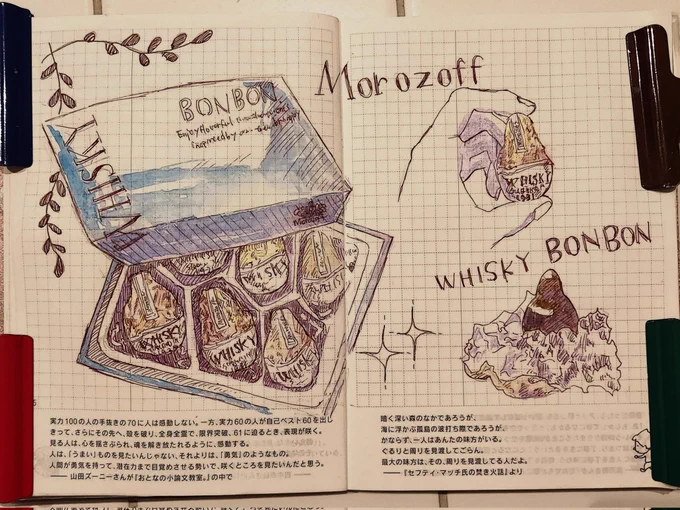 Morozoff
BONBON
Enjoy
inspired by
WHISKY
WHISKY
WHISKY
WHISKY
WHISKY
WHISKY BONBON
実力100の人の手抜きの70に人は感動しない。一方、実力60の人が自己ベスト60を出し
きって、さらにその先へ、殻を破り、全身全霊で、限界突破、61に迫るとき、表現が咲く。
見る人は、心を揺さぶられ、魂を解き放たれるように、感動する。
人は、「うまい」ものを見たいんじゃない、それよりは、「勇気」のようなもの。
人間が勇気を持って、潜在力まで目覚めさせる勢いで、咲くところを見たいんだと思う。
―― 山田ズーニーさんが『おとなの小論文教室。』の中で
暗く深い森のなかであろうが、
海に浮かぶ孤島の波打ち際であろうが、
かならず、一人はあんたの味方がいる。
ぐるりと周りを見渡してごらん。
最大の味方は、その、周りを見渡してる人だよ。
―― 『セフティ・マッチ氏の焚き火話』より